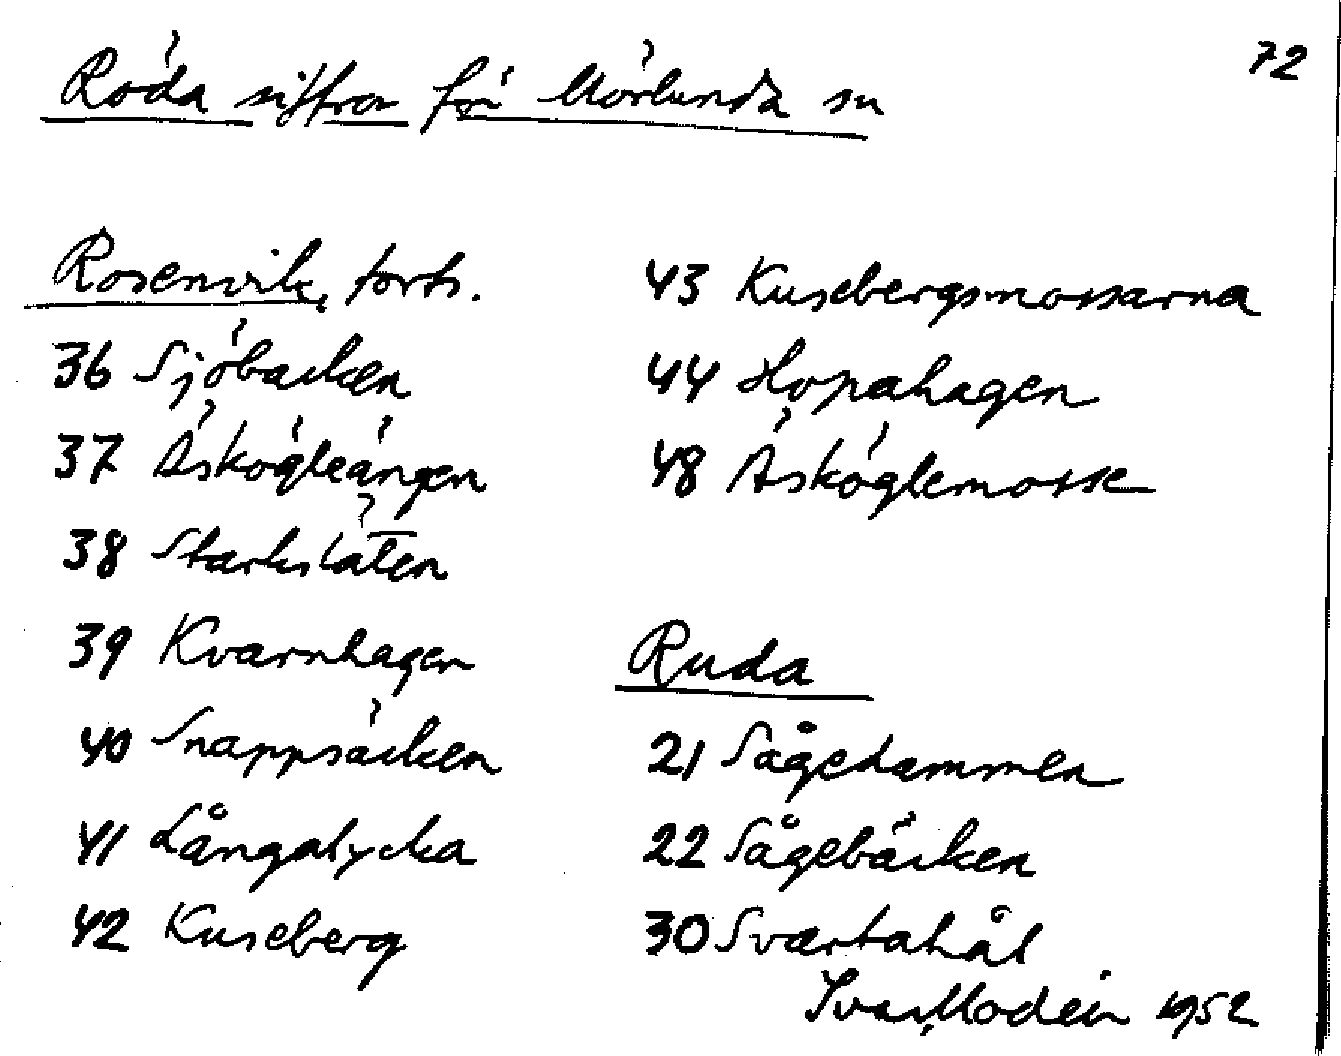 72
Röda siffror frå Mörlunda sn
Rosenvik, forts.
36 Sjöbacken
37 Åskögleängen
38 Starkslåten
39 Kvarnhagen
40 Snappsäcken
41 Långalycka
42 Kuseberg
43 Kusebergsmossarna
44 Hopahagen
48 Åsköglemosse
Ruda
21 Sågedammen
22 Sågebäcken
30 Svartahål
Ivar Modéer 1952